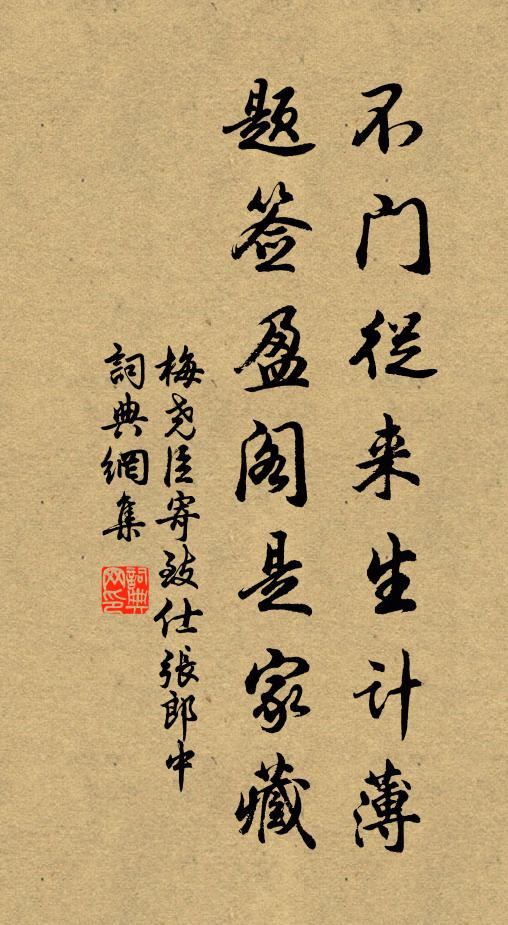 不门從来生计薄
题签盈阁是家藏
梅尧臣寄致仕張郎中
詞典網集
詞典网印